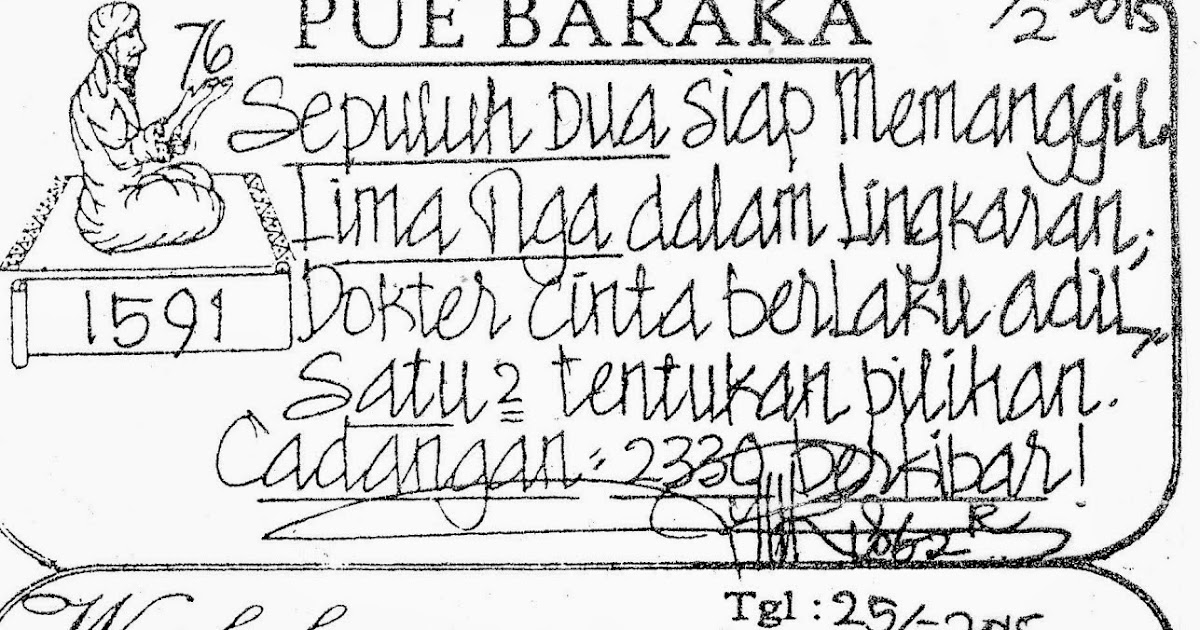 PUE BARAKA
/2 2015
76
Sepuluh Dua siap Memanggil
Lima Nga dalam Lingkaran;
Dokter Cinta berlaku adil,
1591
Satu 2 tentukan pilihan.
Cadangan = 2330 berkibar!
1862 R
Tgl : 25/-2015